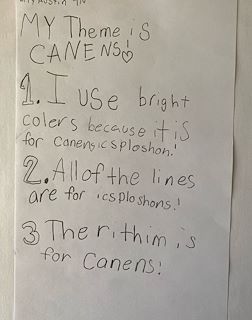 MY Theme is
CANENS!
1. I use bright
colers because it is
for canensicsploshon!
2. All of the lines
are for icsploshons!
3 The rithim is
for Canens!